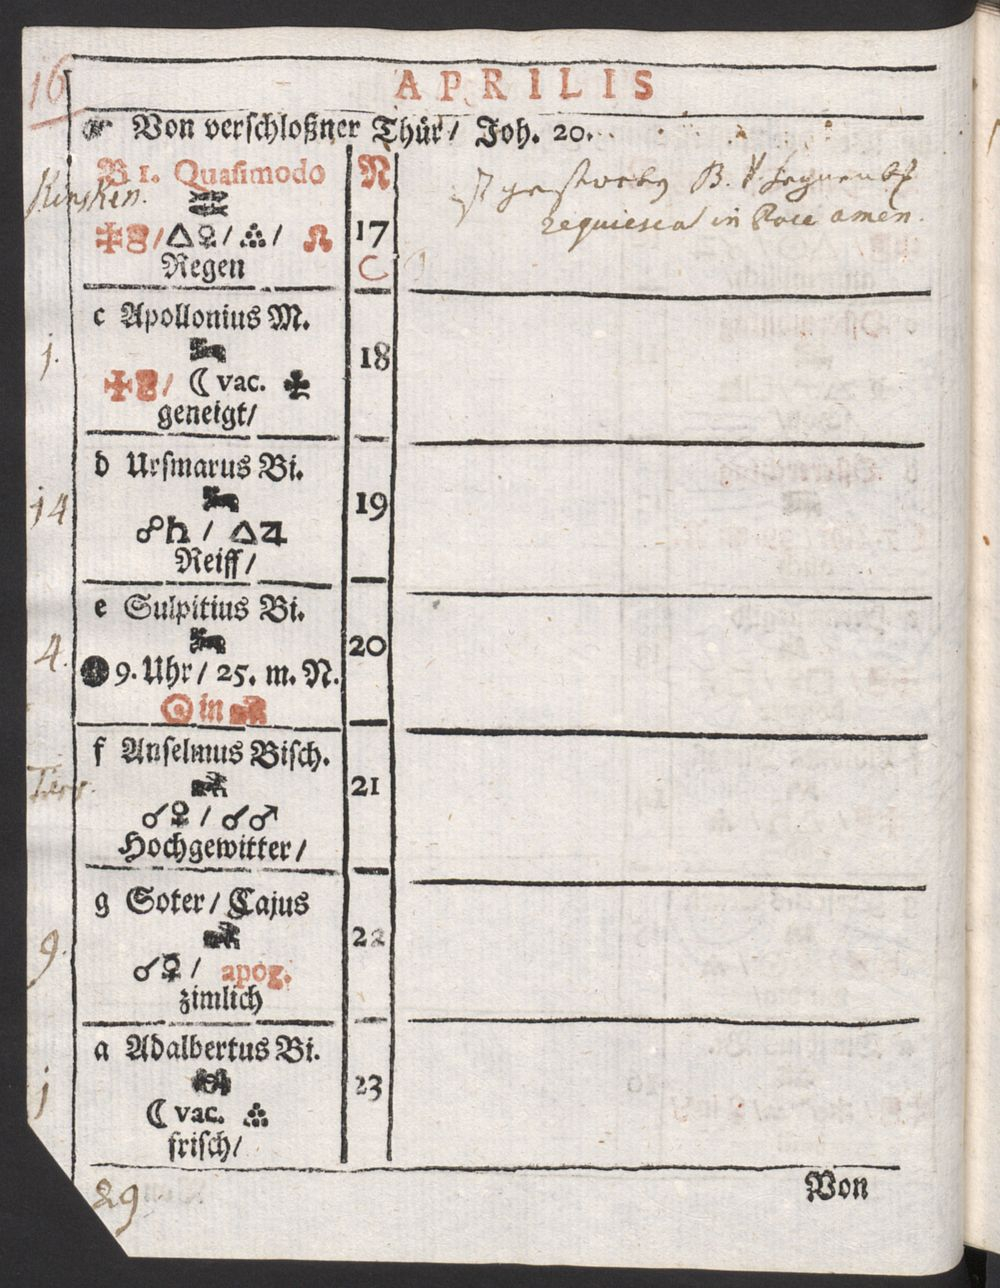 16
APRILIS
☞ Von verschloßner Thür / Joh. 20.
B 1. Quasimodo N
♓
/ △♀ / / ☊ 17
Regen
ist gestorben B. V.
requiescat in Pace amen.
c Apollonius M.
1. ♈ 18
/ ☾ vac. ✤
geneigt /
d Ursmarus Bi.
14 ♈ 19
☍♄ / △♃
Reiff /
e Sulpitius Bi.
4. ♈ 20
● 9. Uhr / 25. m. N.
☉ in ♉
f Anselmus Bisch.
♉ 21
☌♀ / ☌♂
Hochgewitter /
g Soter / Cajus
9. ♉ 22
☌☿ / apog.
zimlich
a Adalbertus Bi.
1 ♊ 23
☾ vac.
frisch /
29
Von